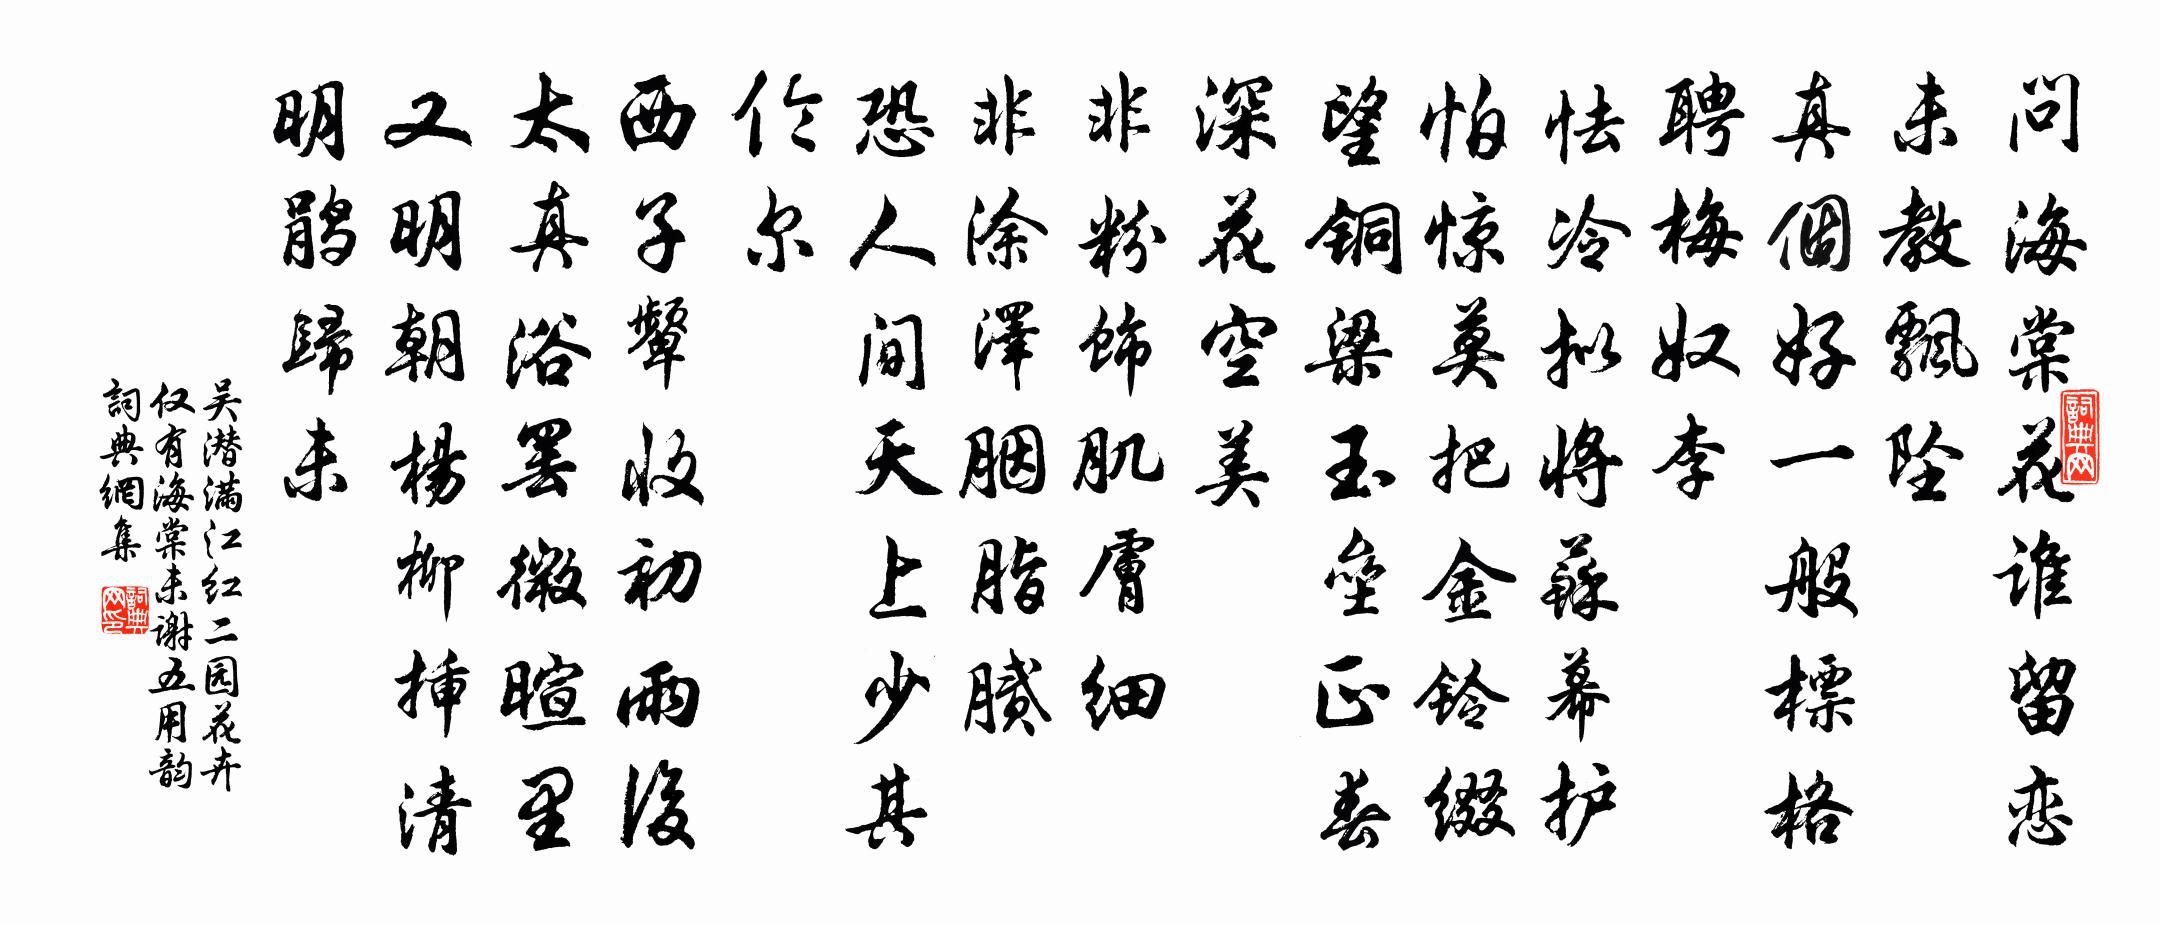 问海棠花谁留恋
未教飘坠
真個好一般標格
聘梅奴李
怯冷拟将蘇幕护
怕惊莫把金铃缀
望铜梁玉垒正春
深花空美
非粉饰肌膚细
非涂澤胭脂腻
恐人间天上少其
伦尔
西子颦收初雨後
太真浴罢微暄里
又明朝楊柳插清
明鹃歸未
吴潜满江红二园花卉
仅有海棠未谢五用韵
詞典網集
詞典网
詞典网印